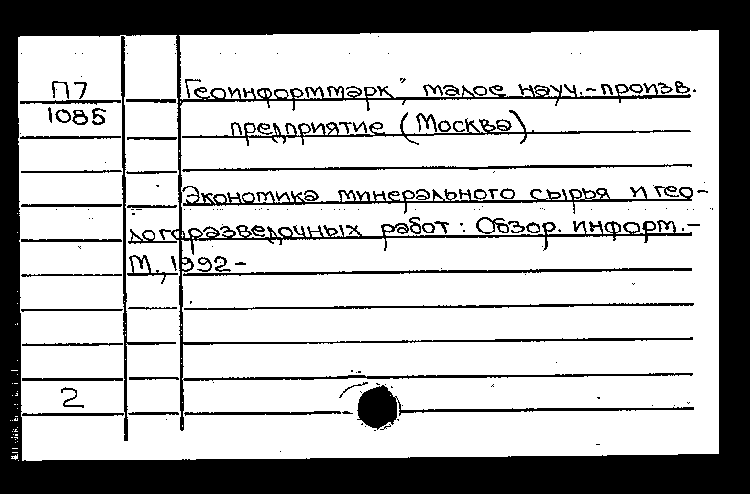 П7
1085
Геоинформмарк", малое науч.-произв.
предприятие (Москва).
Экономика минерального сырья и гео-
логоразведочных работ: Обзор. информ.-
М., 1992-
2